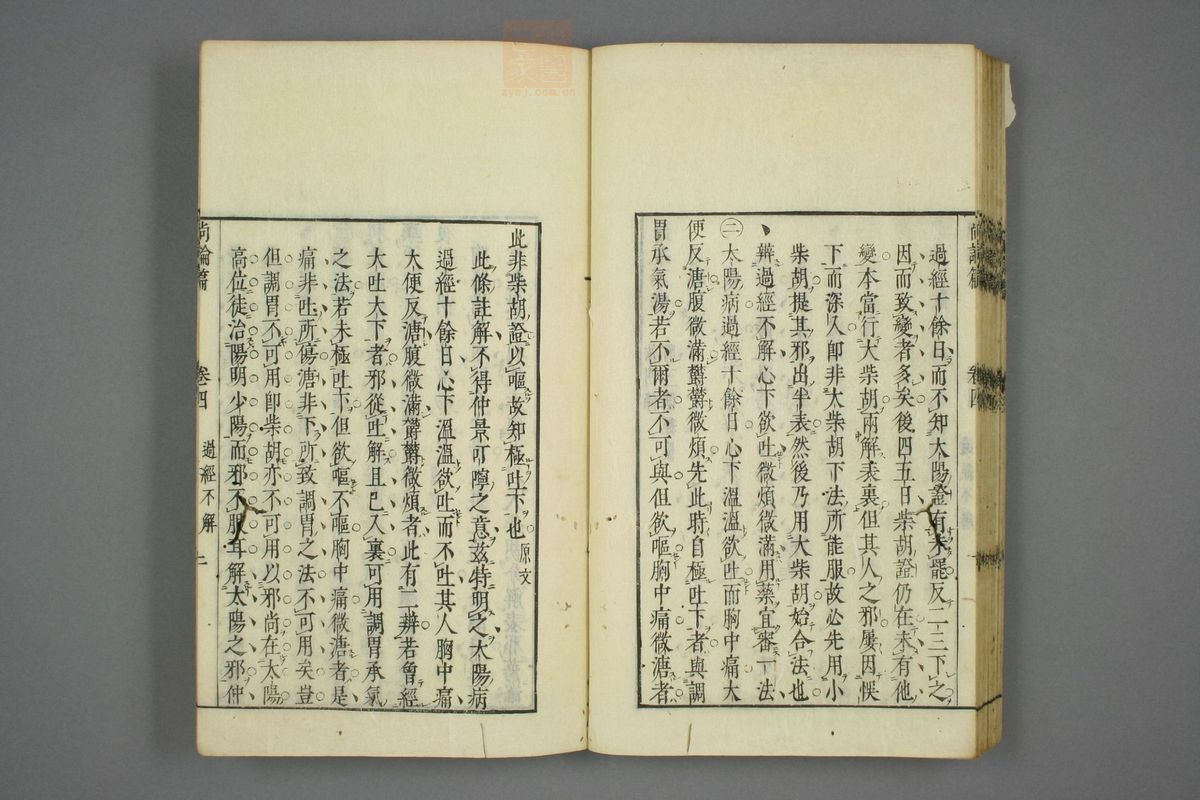 尚論篇 卷四
過經十餘日而不知太陽證有未罷反二三下之
因而致變者多矣後四五日柴胡證仍在未有他
變本當行大柴胡兩解表裏但其人之邪屢因悞
下而深入卽非大柴胡下法所能服故必先用小
柴胡提其邪出半表然後乃用大柴胡始合法也
辨過經不解心下欲吐微煩微滿用藥宜審一法
㊁太陽病過經十餘日心下溫溫欲吐而胸中痛大
便反溏腹微滿欝欝微煩先此時自極吐下者與調
胃承氣湯若不爾者不可與但欲嘔胸中痛微溏者
此非柴胡證以嘔故知極吐下也原文
此條註解不得仲景叮嚀之意茲特明之太陽病
過經十餘日心下溫溫欲吐而不吐其人胸中痛
大便反溏腹微滿欝欝微煩者此有二辨若曾經
大吐大下者邪從吐解且已入裏可用調胃承氣
之法若未極吐下但欲嘔不嘔胸中痛微溏者是
痛非吐所傷溏非下所致調胃之法不可用矣豈
但調胃不可用卽柴胡亦不可用以邪尚在太陽
高位徒治陽明少陽而邪不服耳解太陽之邪仲
尚論篇 卷四 過經不解 二
zysj.com.cn